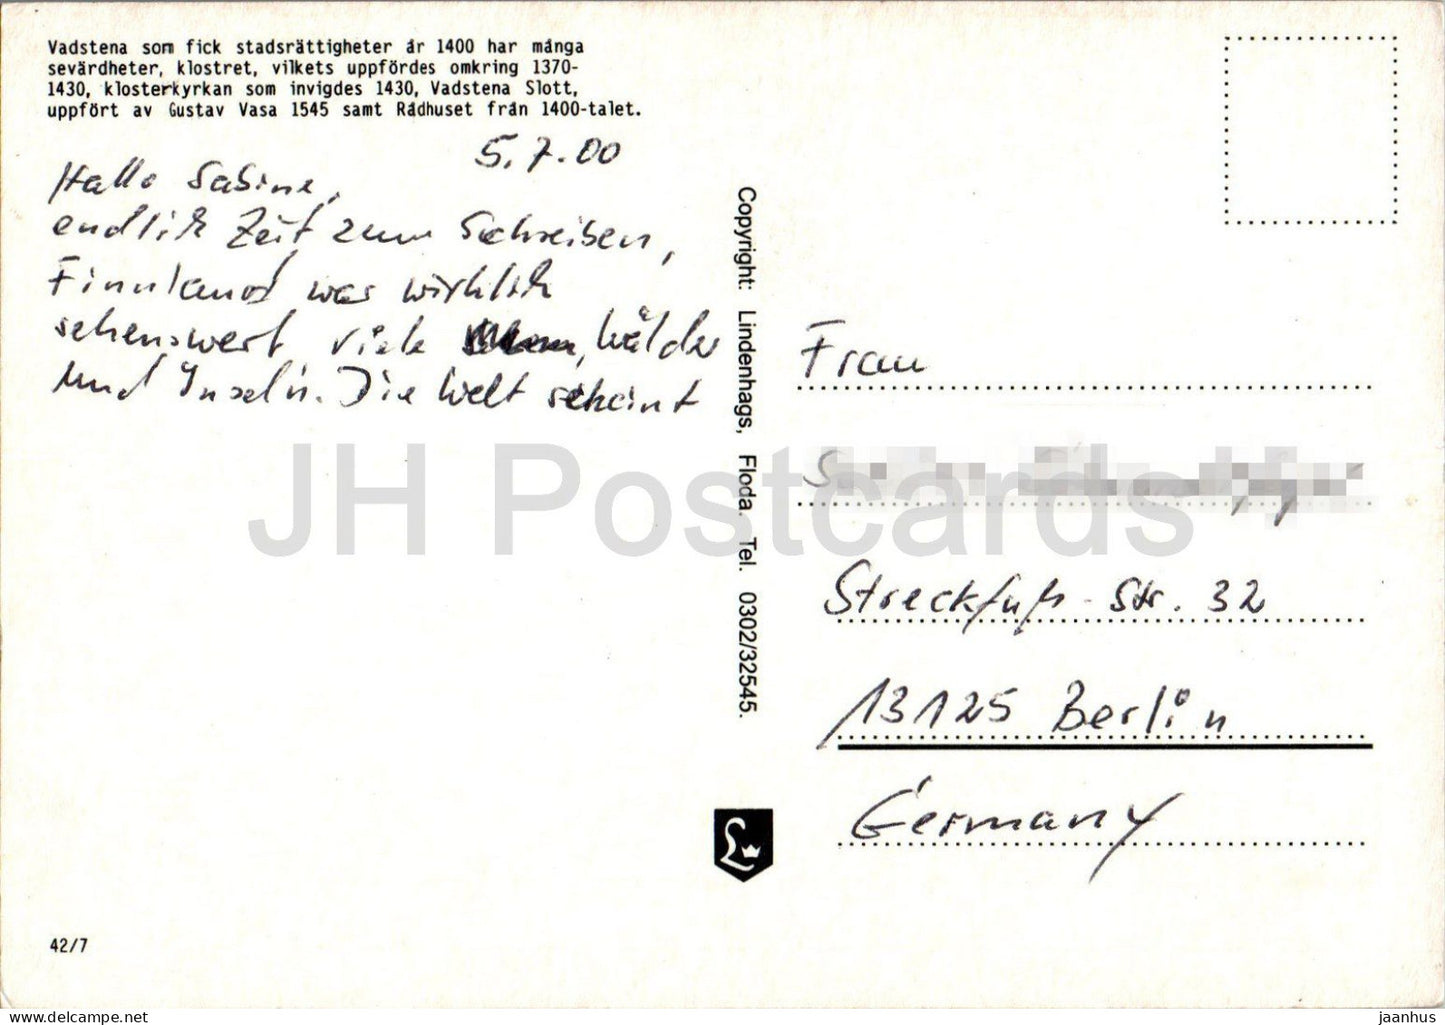 Vadstena som fick stadsrättigheter år 1400 har många
sevärdheter, klostret, vilkets uppfördes omkring 1370-
1430, klosterkyrkan som invigdes 1430, Vadstena Slott,
uppfört av Gustav Vasa 1545 samt Rådhuset från 1400-talet.
5.7.00
Hallo Sabine,
endlich Zeit zum Schreiben,
Finnland war wirklich
sehenswert, viele Wälder
und Inseln. Die Welt scheint
Copyright: Lindenhags, Floda. Tel. 0302/32545.
Frau
Streckfuß-Str. 32
13125 Berlin
Germany
JH Postcards
42/7
eu.jhpostcard.com
jaanhus